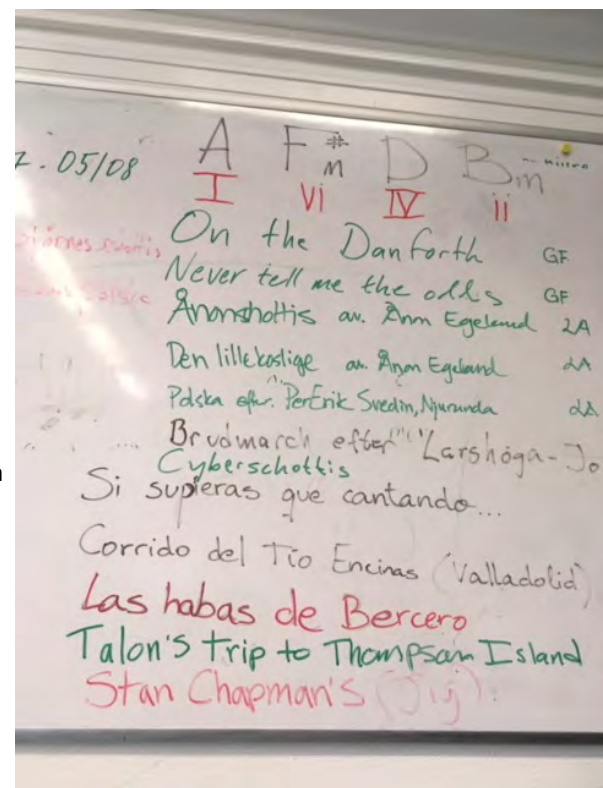 7. 05/08 A F#m D Bm
I vi IV ii
On the Danforth GF
Never tell me the odds GF
Ånonshottis av. Ånon Egeland 2A
Den lillekoslige av. Ånon Egeland 2A
Polska efter. PerErik Svedin, Njurunda 2A
Brudmarch efter "Larshöga-Jo
Cyberschottis
Si supieras que cantando...
Corrido del Tío Encinas (Valladolid)
Las habas de Bercero
Talon's trip to Thompson Island
Stan Chapman's (Jig).